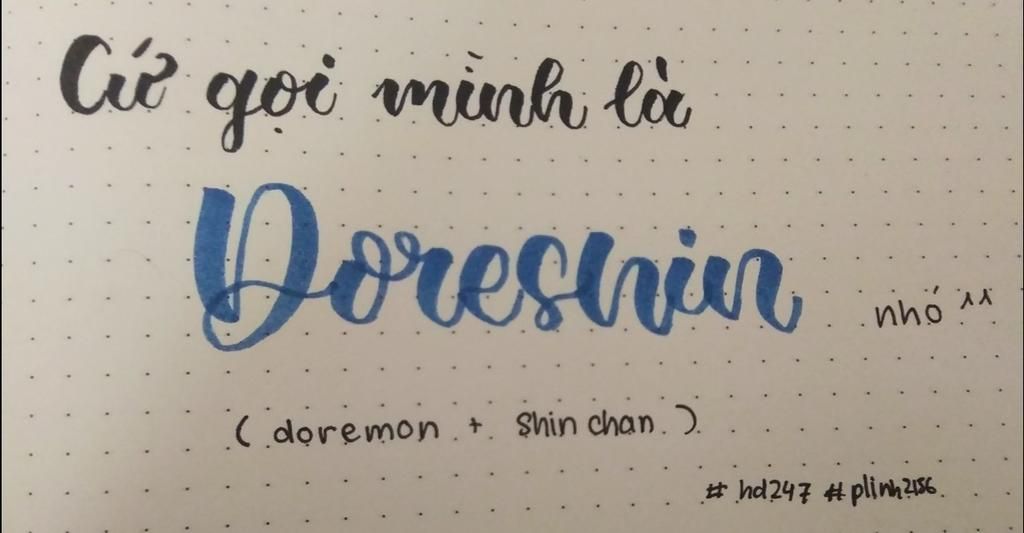 Cứ gọi mình là
Doreshin
nhó ^^
( doremon + shin chan )
# hd247 # plinh2156